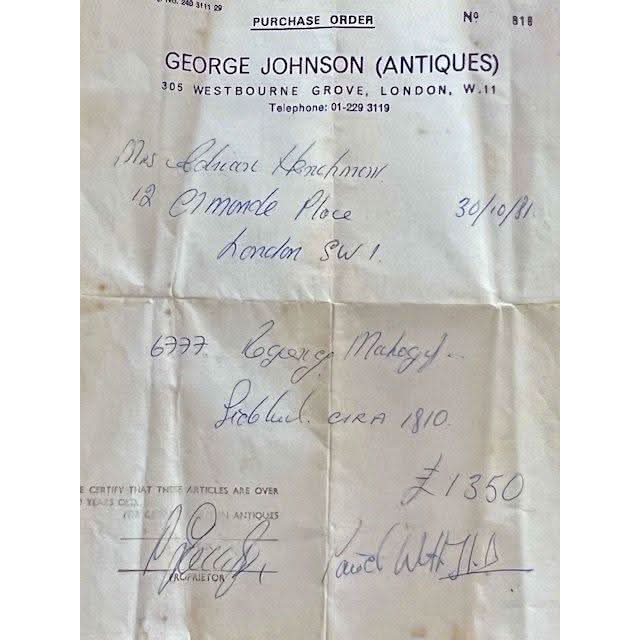 No. 240 3111 29
PURCHASE ORDER
Nº 818
GEORGE JOHNSON (ANTIQUES)
305 WESTBOURNE GROVE, LONDON, W.11
Telephone: 01-229 3119
Mrs Adrian
12 Ormonde Place 30/10/81.
London SW1.
6777. Regency Mahogy
CIRA 1810.
£1350
E CERTIFY THAT THESE ARTICLES ARE OVER
YEARS OLD.
IN ANTIQUES
PROPRIETOR